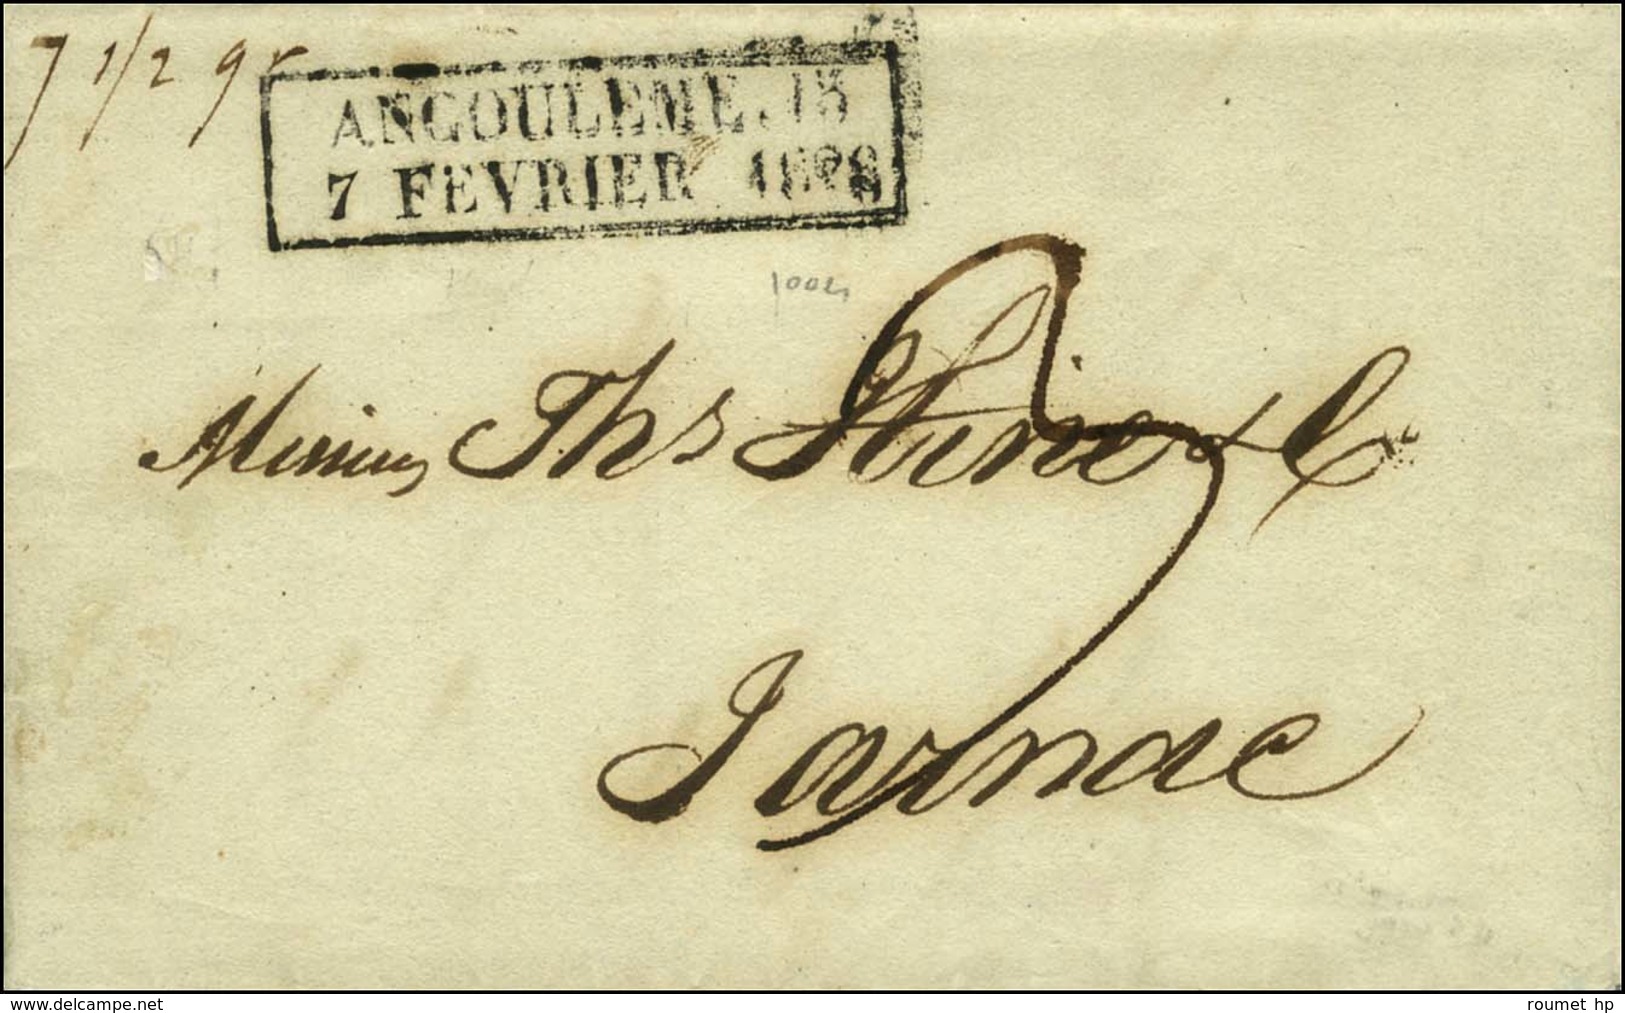 7 1/2 gr
ANGOULEME. 15
7 FEVRIER 1828
1002
Messieurs Ths Hine & C
Jarnac
www.delcampe.net
roumet hp